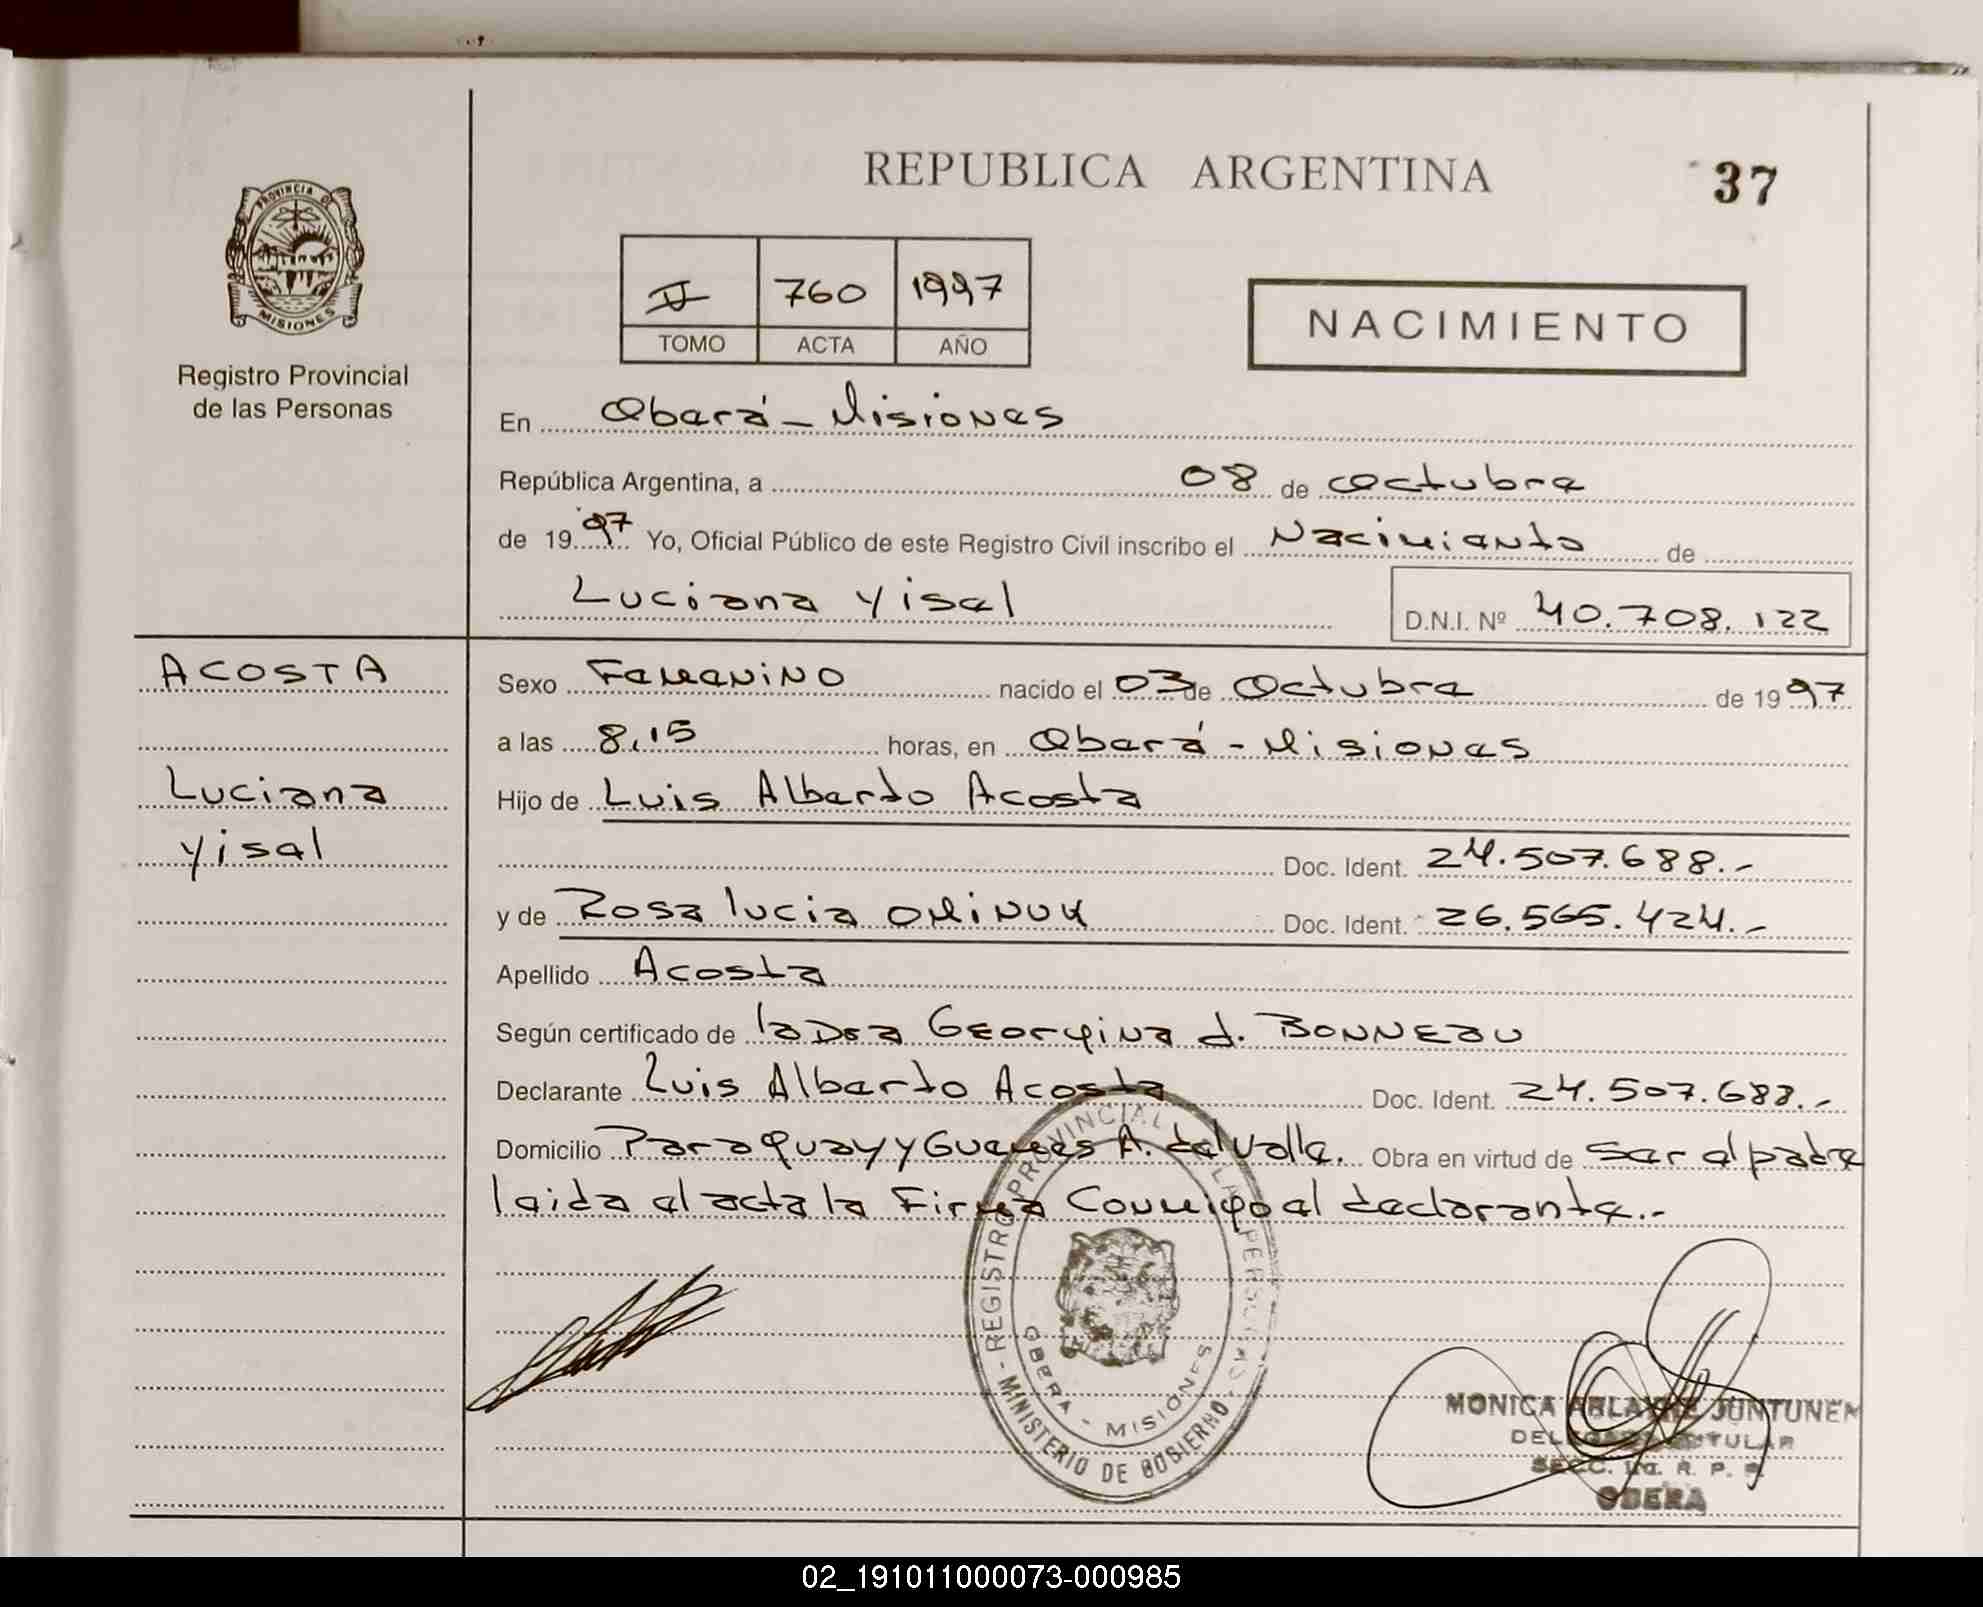 REPUBLICA ARGENTINA
37
PROVINCIA DE
MISIONES
Registro Provincial
de las Personas
II 760 1997
TOMO ACTA AÑO
NACIMIENTO
En Oberá - Misiones
República Argentina, a 08 de Octubre
de 1997 Yo, Oficial Público de este Registro Civil inscribo el Nacimiento de
Luciana Yisel
D.N.I. Nº 40.708.122
ACOSTA
Luciana
Yisel
Sexo Femenino nacido el 03 de Octubre de 1997
a las 8,15 horas, en Oberá - Misiones
Hijo de Luis Alberto Acosta
Doc. Ident. 24.507.688.-
y de Rosa lucia OMINUK Doc. Ident. 26.565.424.-
Apellido Acosta
Según certificado de la Dra Georgina d. BONNEAU
Declarante Luis Alberto Acosta Doc. Ident. 24.507.688.-
Domicilio Paraguay y Guemes A. del Valle. Obra en virtud de ser el padre
leida el acta la Firma Conmigo el declarante.-
REGISTRO PROVINCIAL DE LAS PERSONAS
OBERA - MISIONES
MINISTERIO DE GOBIERNO
MONICA JUNTUNEN
DELEGADA TITULAR
SECC. 1ra. R. P. P.
OBERA
02_191011000073-000985